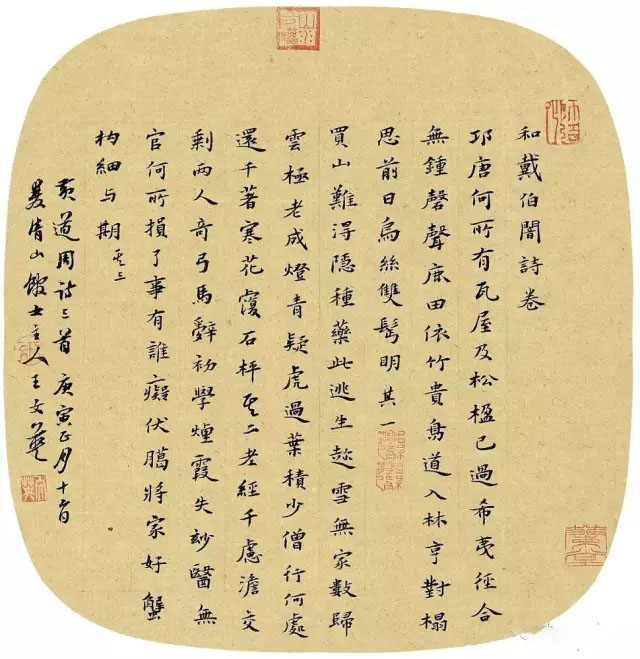 和戴伯闇詩卷
邛唐何所有瓦屋及松楹已過希夷徑合
無鍾磬聲鹿田依竹貴鳥道入林亨對榻
思前日烏絲雙髩明其一
買山難淂隱種藥此逃生趂雪無家數歸
雲極老成燈青疑虎過葉積少僧行何處
還千著寒花覆石枰其二老經千慮澹交
剩兩人奇弓馬辤初學煙霞失妙醫無
官何所損了事有誰癡伏臈將家好蟹
杓細与期其三
黃道周詩三首庚寅正月十有
館士主人王文英